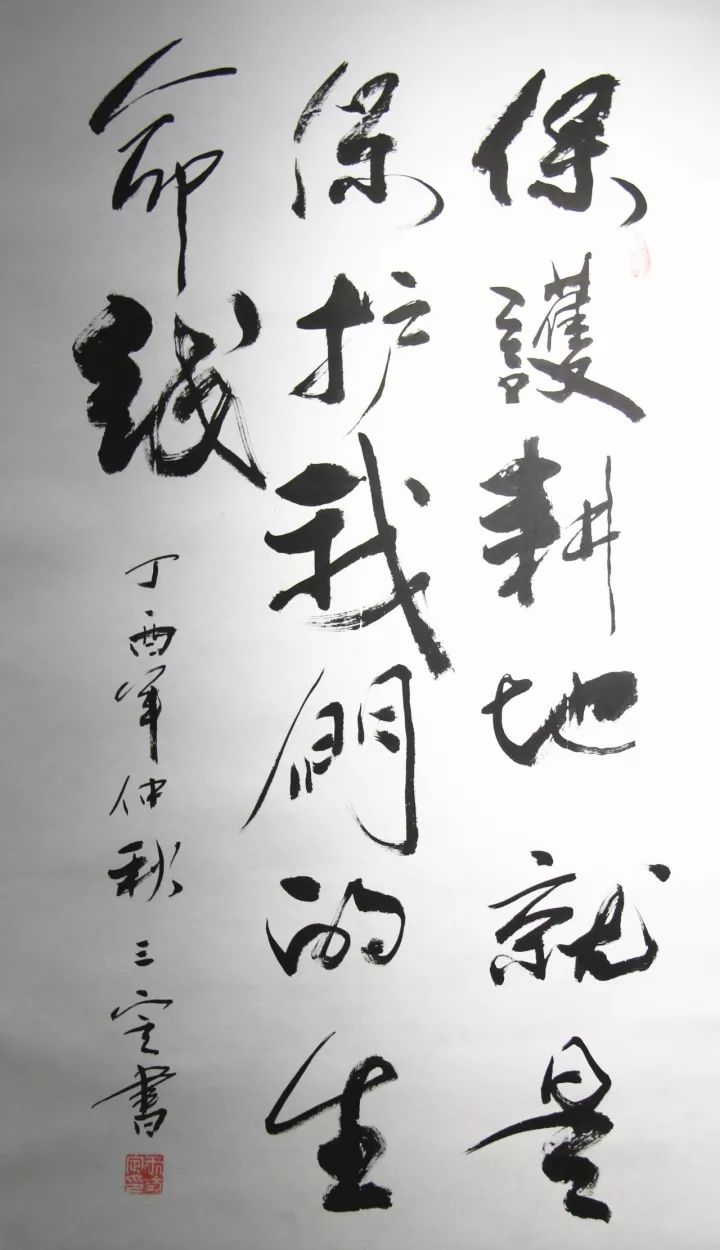 保護耕地就是
保护我們的生
命线
丁酉年仲秋 三定書